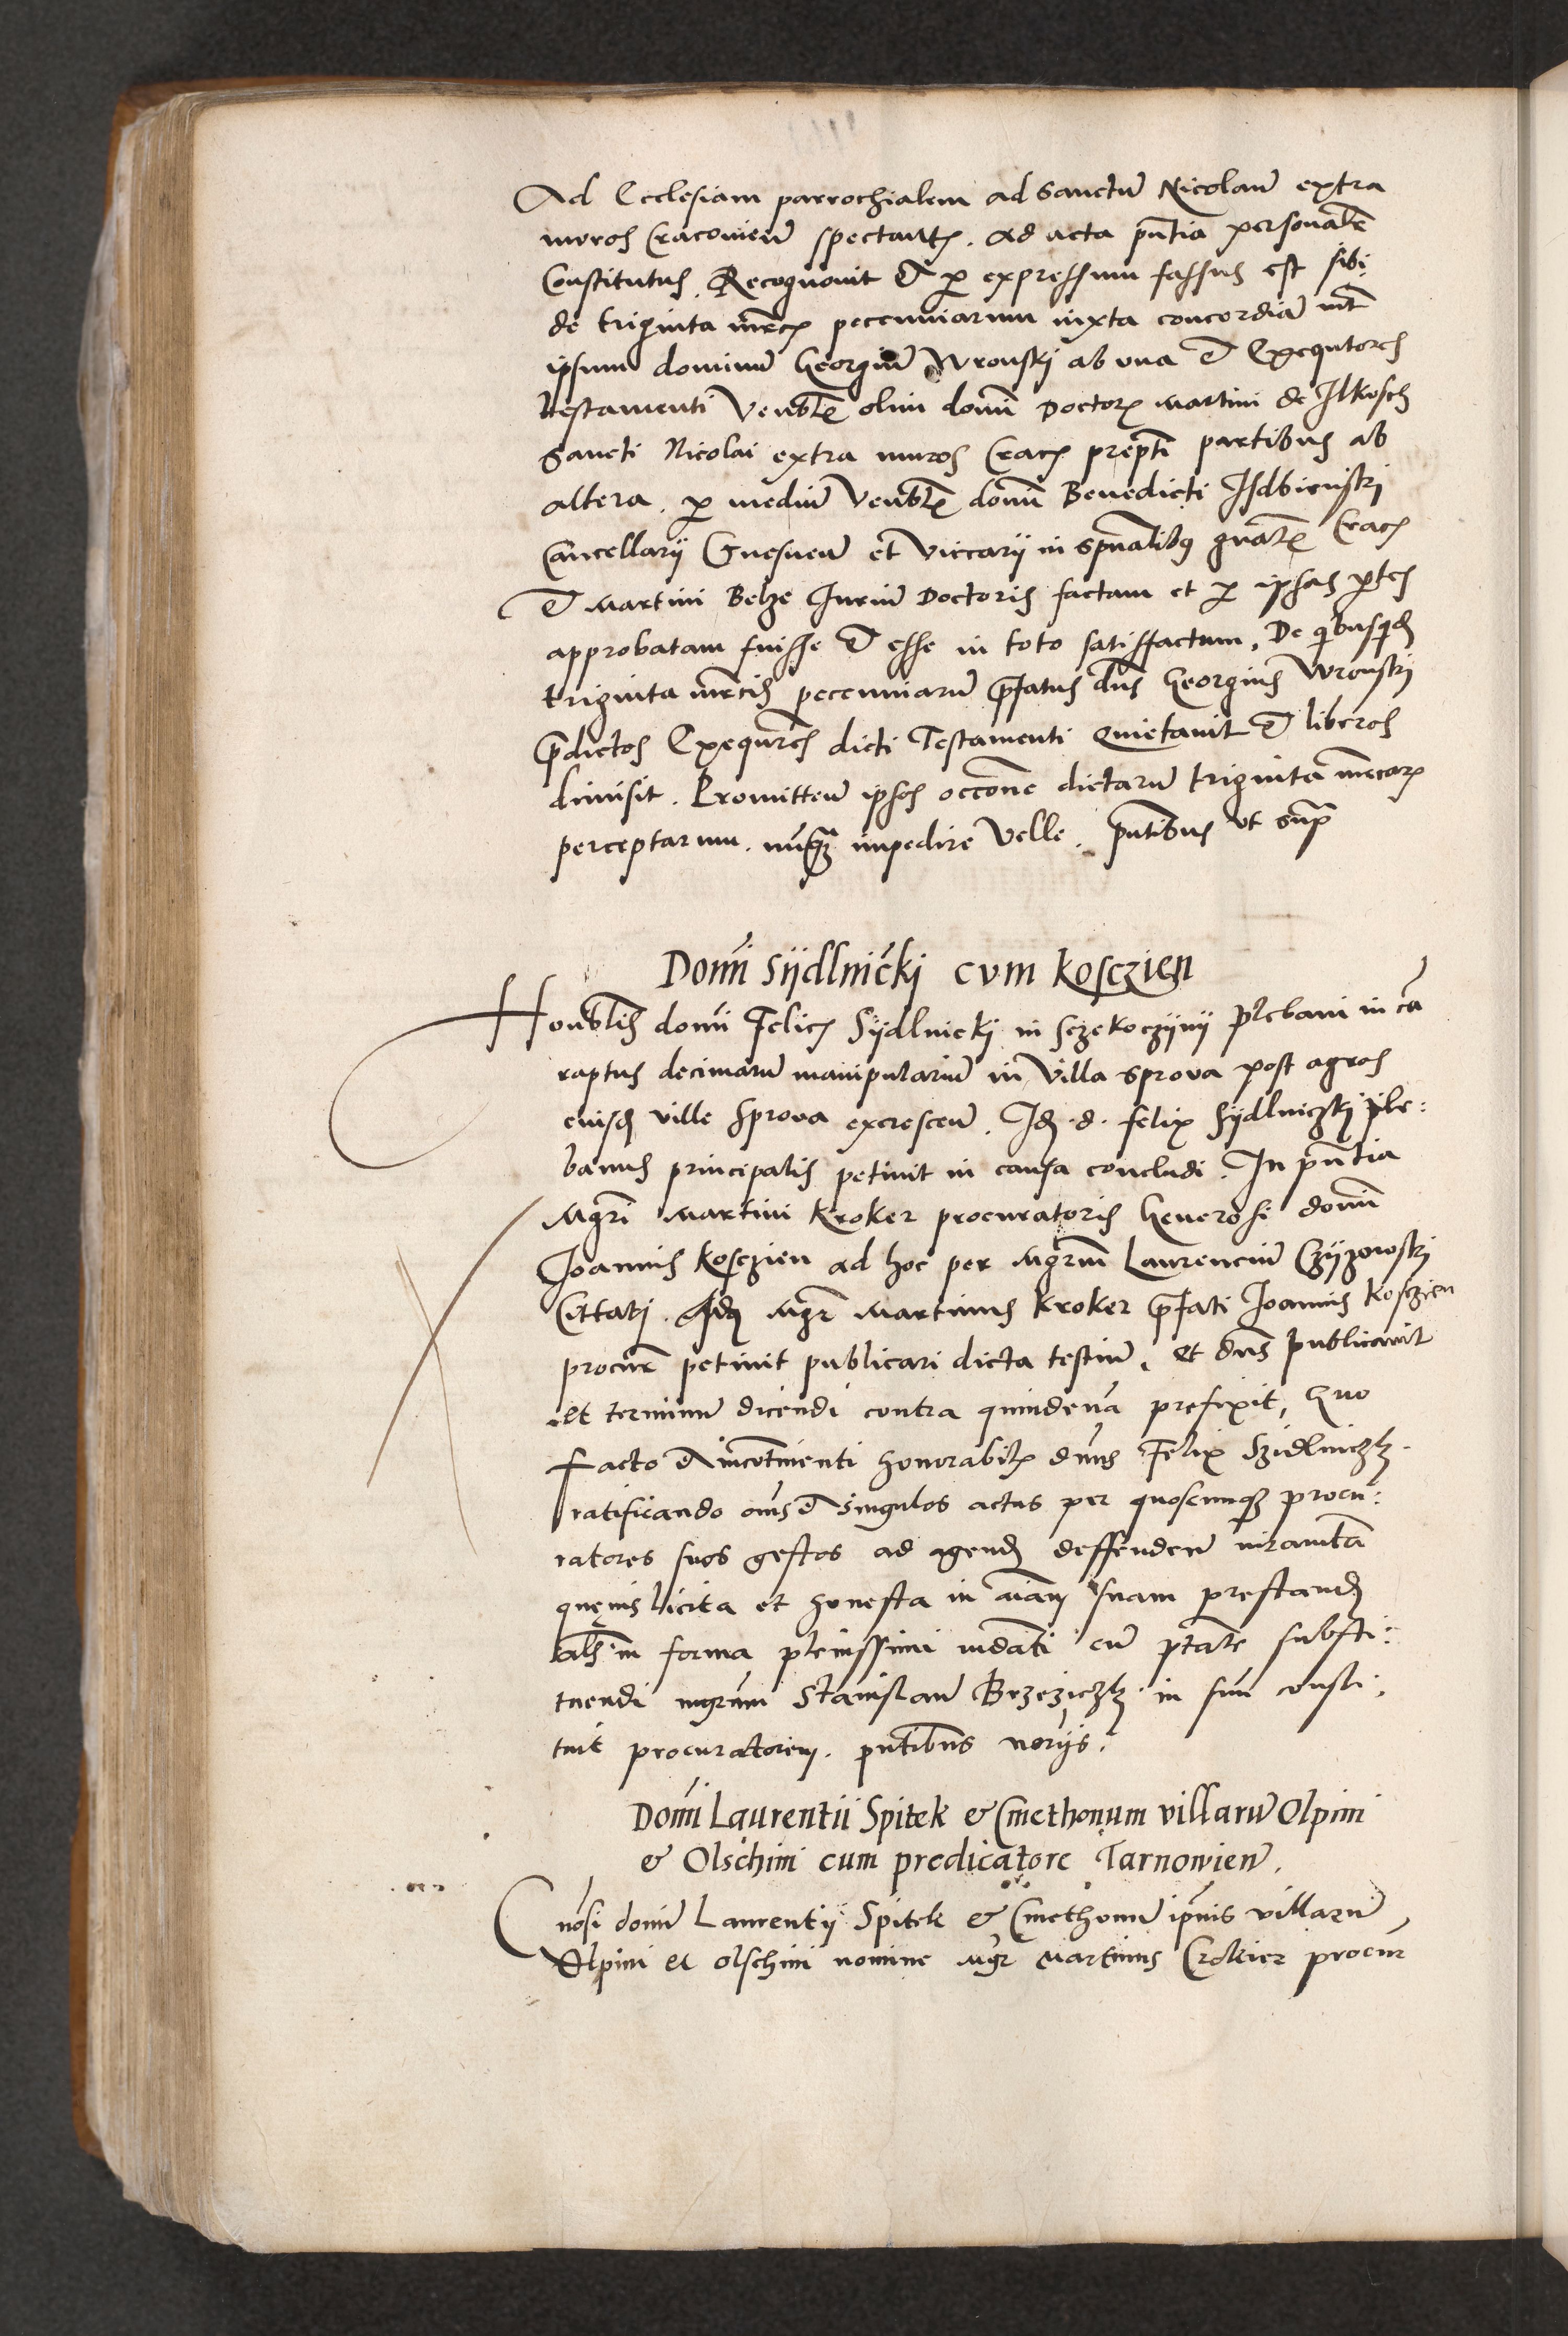 Ad Ecclesiam parrochialem ad Sanctum Nicolaum extra
muros Cracovien spectantes. Ad acta pntia personalr
Constitutus. Recognovit et p expressum fassus est sibi
de triginta mrcs pecuniarum iuxta concordia int
ipsum dominum Georgium Wronski ab una et Exequtores
testamenti Venblis olim domi Doctoris Martini de Ilkusch
Sancti Nicolai extra muros Crac prepti partibus ab
altera. p medium Venbles domi Benedicti Isdbienski
Cancellarii Gnesnen et Vicarii in spualibus gnalem Crac
et Martini Belze Iurium Doctoris factam et p ipsas ptes
approbatam fuisse et esse in toto satisfactum. De quibusquidem
triginta mrcis pecuniarum pfatus dns Georgius Wronski
pdictos Exequtores dicti Testamenti quietavit et liberos
dimisit. Promitten ipsos occone dictarum triginta mrcarum
perceptarum. nunqua impedire velle. pntibus ut supra
Domi Sijdlnicki cum Kosczien
Honblis domi Felicis Sijdlnicki in Sczekoczijnij plebani in ca
raptus decimarum manipularium in villa Sprova post agros
eiusdem ville Sprova excrescen. Idem d. Felix Sijdlniczki ple:
banus principalis petivit in causa concludi. In pntia
Mgri Martini Kroker procuratoris Generosi domi
Joannis Kosczien ad hoc per Mgrum Laurencium Czijzowski
Cittati. Idem Mgr Martinus Kroker pfati Joannis Kosczien
procur petivit publicari dicta testium. et dns publicavit
et terminum dicendi contra quindena prefixit, Quo
facto et incotinenti honorabilis dnus Felix
ratificando oms et singulos actus per quoscumque procu:
ratores suos gestos ad agend deffenden iuramta
quevis licita et honesta in aiam suam prestand
als in forma plenissimi mdati cu ptate substi:
tuendi mgrum Stanislaum in suu consti
tuit procuratorem. pntibus noriis.
Domi Laurentii Spitek & Cmethonum villarum Olpini
& Olschini cum predicatore Tarnowien.
Gnosi domi Laurentij Spitek & Cmethonum ipsius villarum
Olpini et Olschini nomine Mgr Martinus Crokier procur